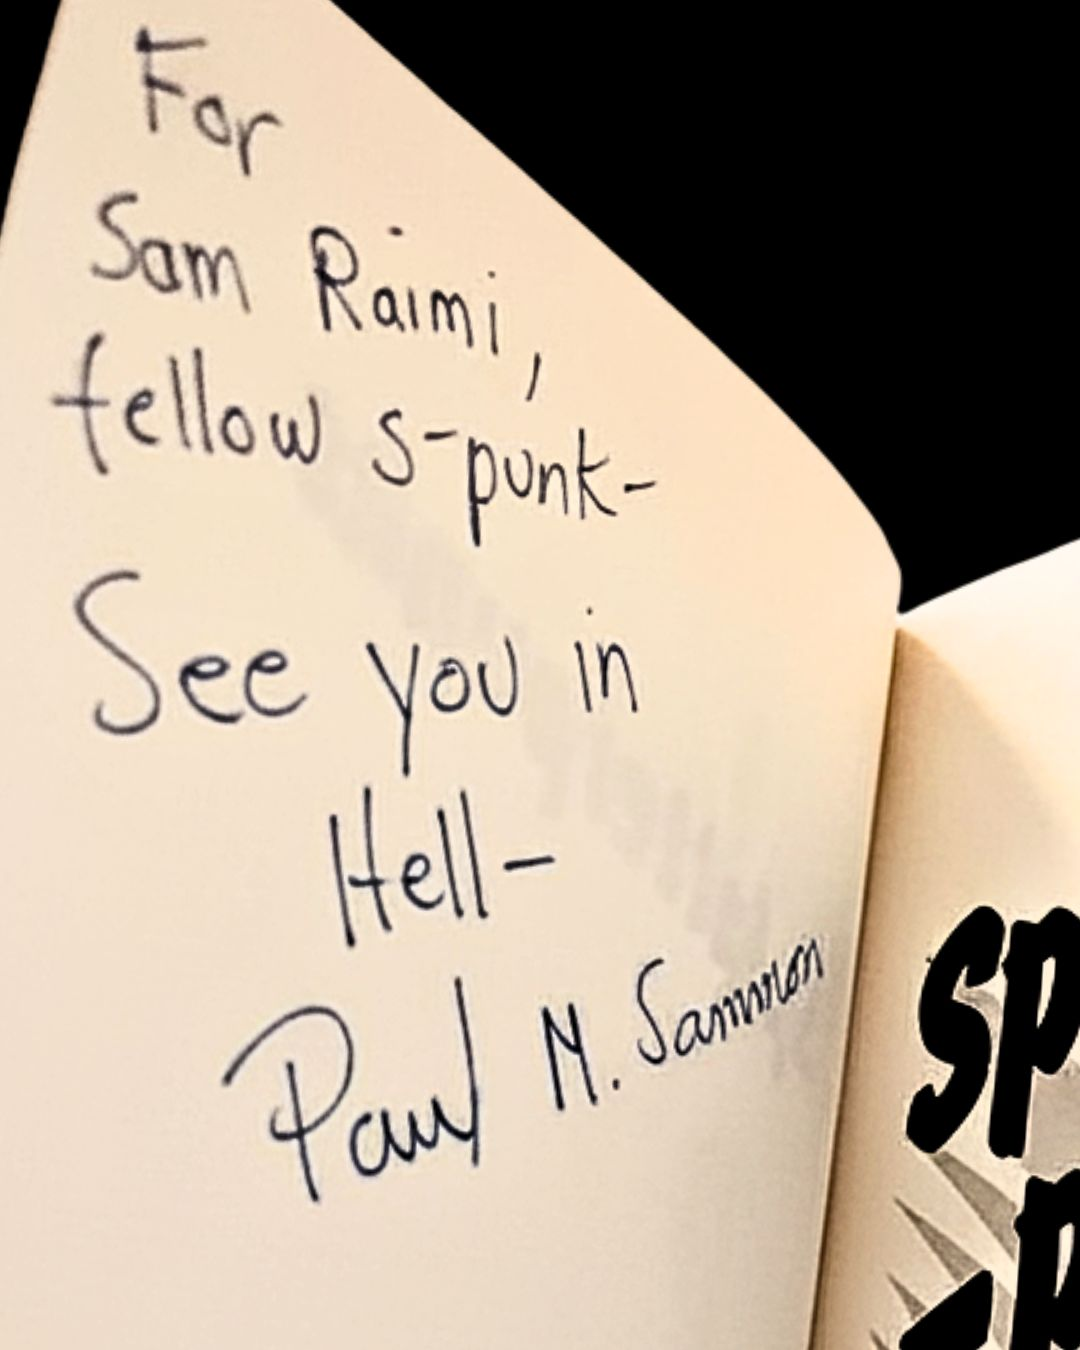 For
Sam Raimi,
fellow s-punk-
See you in
Hell-
Paul M. Sammon
SP
-P